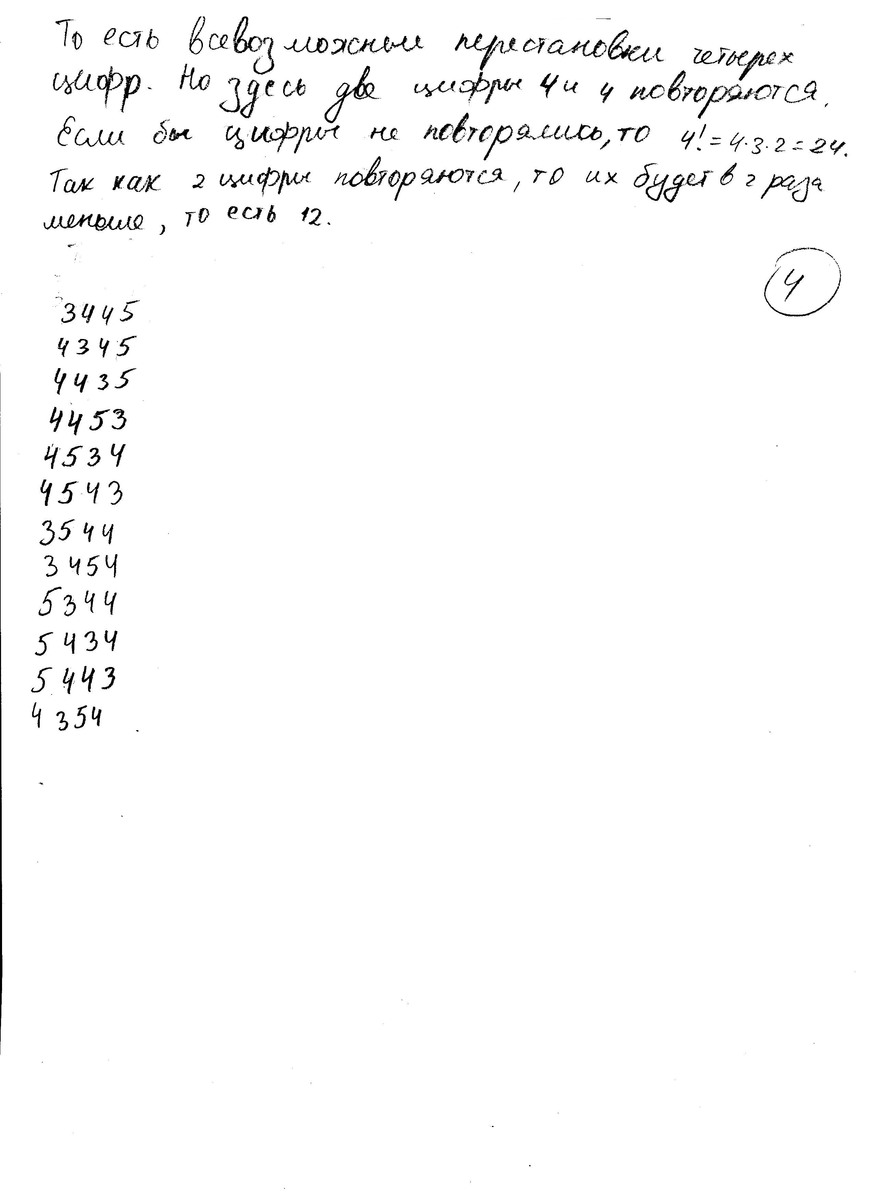 То есть всевозможные перестановки четырех
цифр. Но здесь две цифры 4 и 4 повторяются.
Если бы цифры не повторялись, то 4! = 4·3·2 = 24.
Так как 2 цифры повторяются, то их будет в 2 раза
меньше, то есть 12.
4
3445
4345
4435
4453
4534
4543
3544
3454
5344
5434
5443
4354